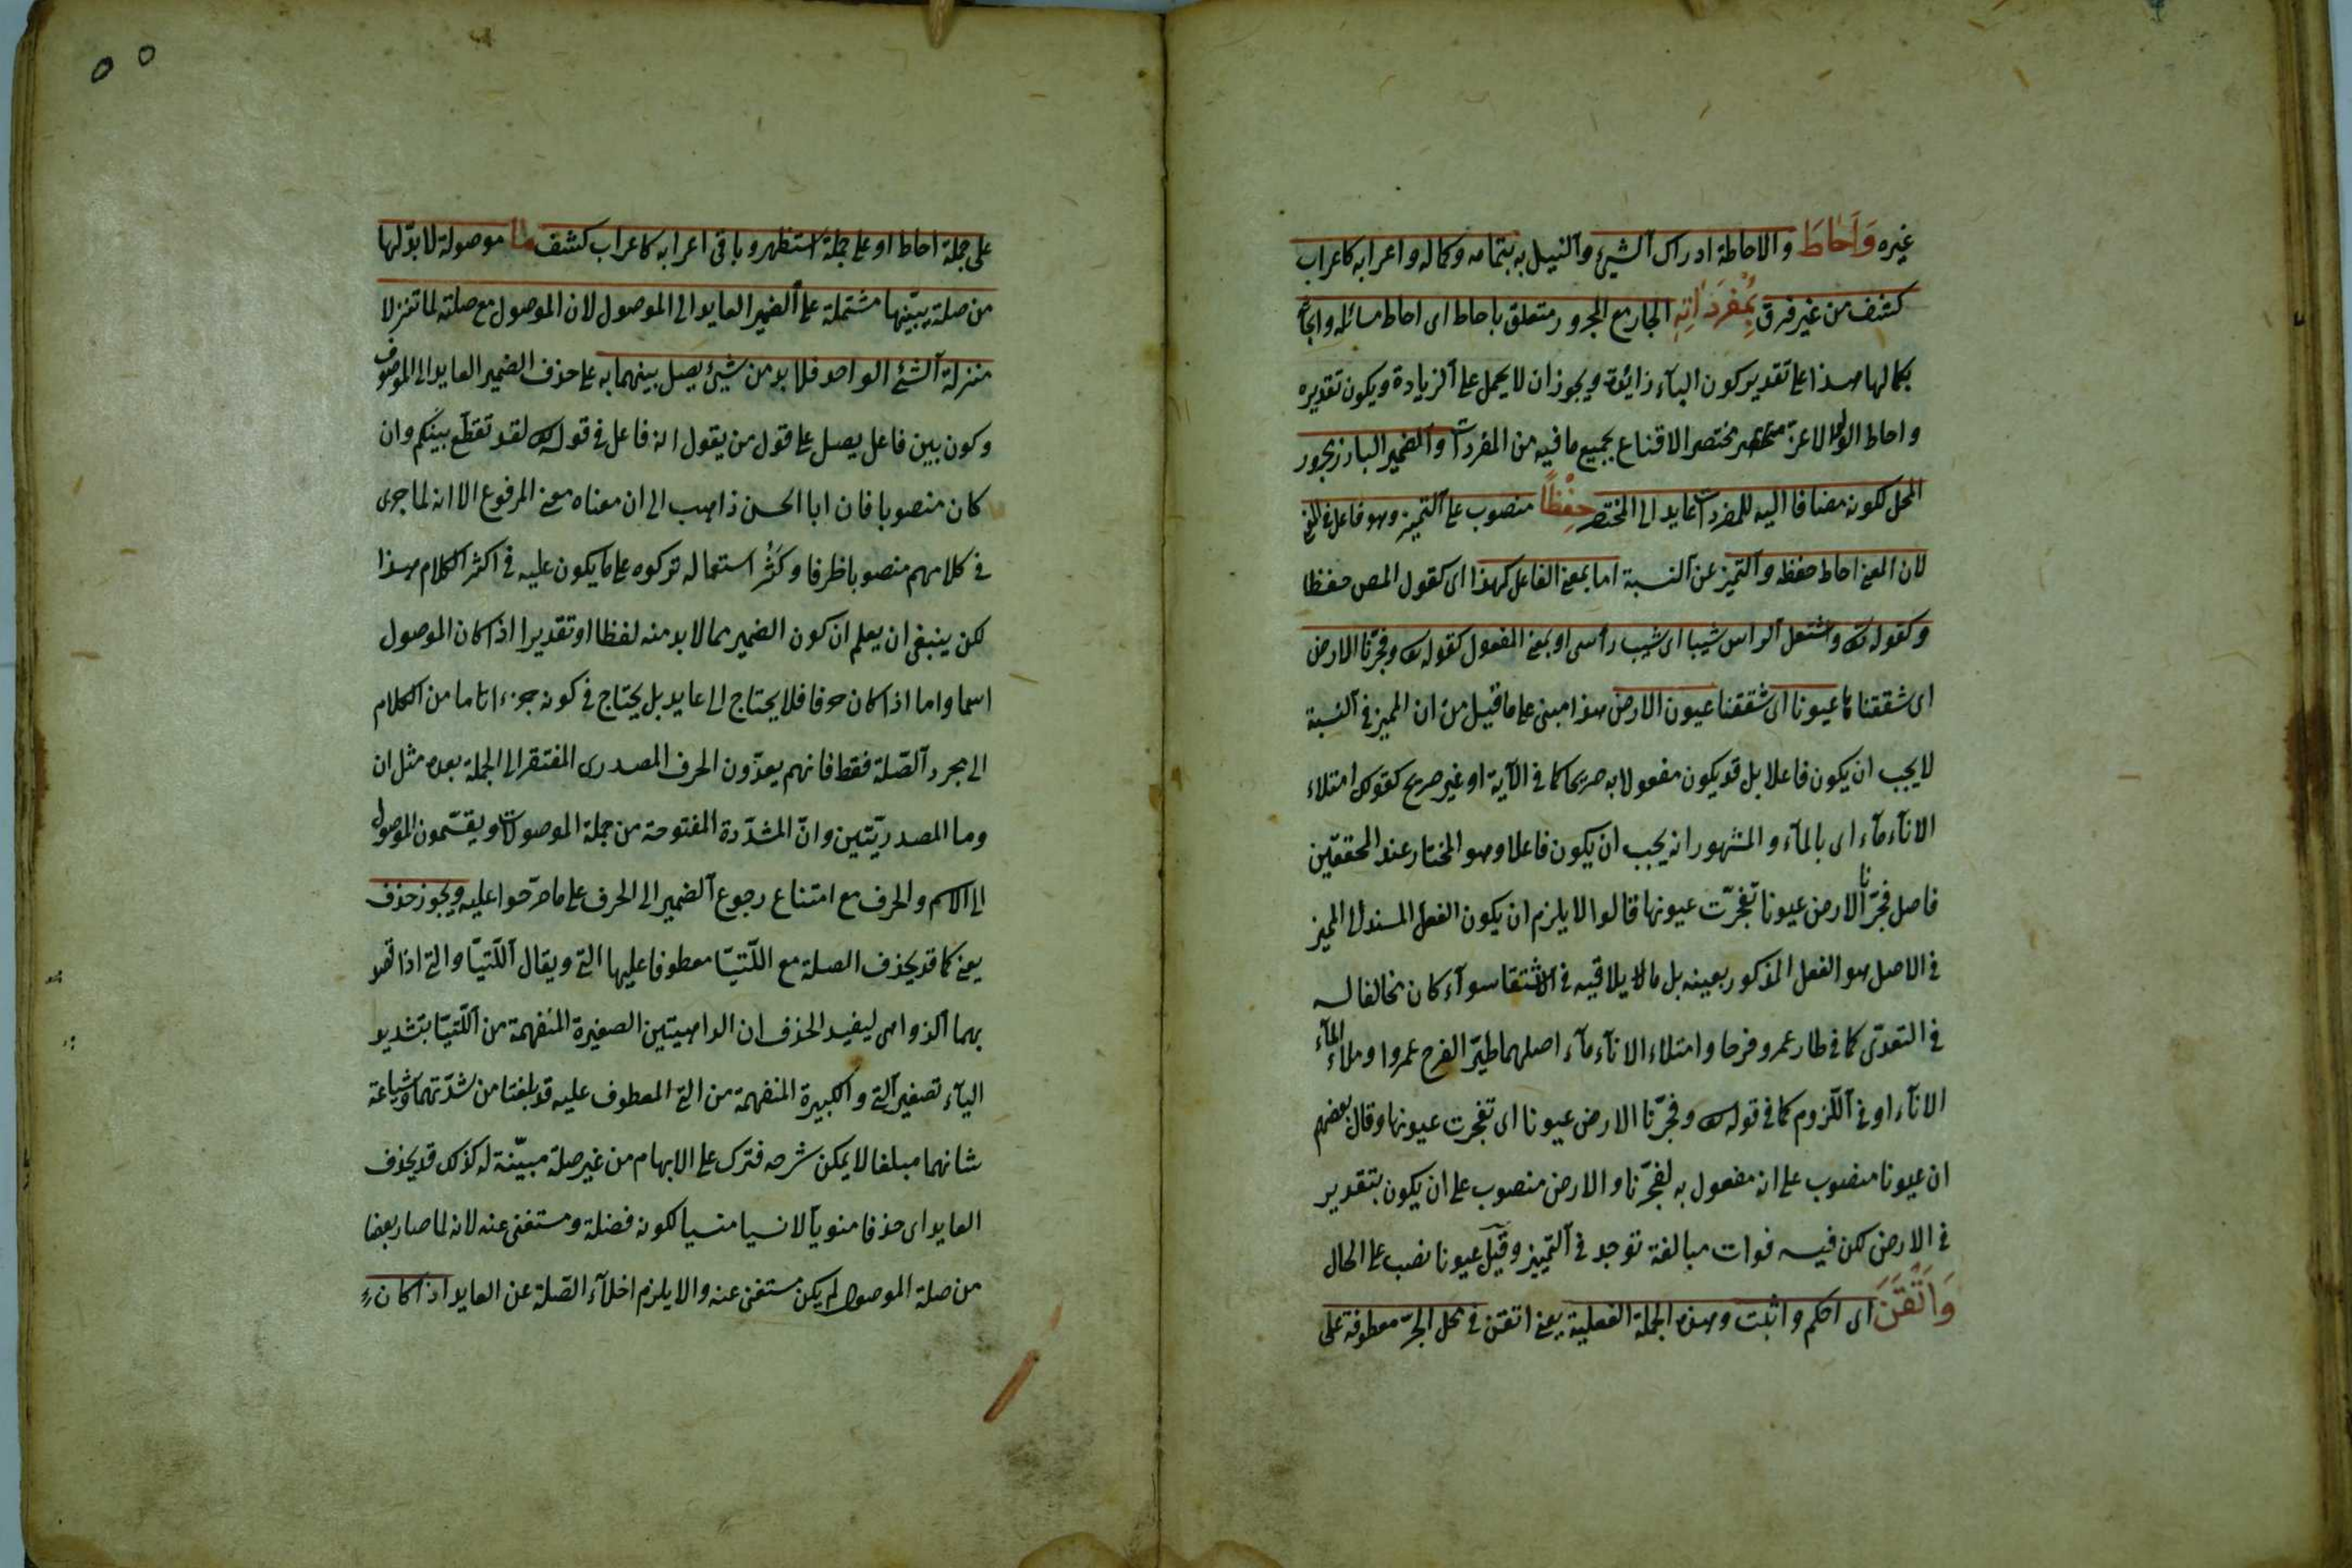 غيره وَاَحَاطَ والاحاطة ادراك الشيئ والنيل به بتمامه وكماله واعرابه كاعراب
كشف من غير فرق بِمُفْرَدَاتِهِ الجار مع المجرور متعلق باحاط اى احاط مسائله وابحاثه
بكمالها هذا على تقدير كون الباء زائدة ويجوز ان لا يحمل على الزيادة ويكون تقديره
واحاط الولد الاعز مختصر الاقناع بجميع ما فيه من المفردات والضمير البارز مجرور
المحل لكونه مضافا اليه للمفردات عايد الى المختصر حِفْظًا منصوب على التمييز وهو فاعل فى المعنى
لان المعنى احاط حفظه والتميز عن النسبة اما بمعنى الفاعل كهذا اى كقول المص حفظا
وكقوله تعالى واشتعل الراس شيبا اى شيب رأسى او بمعنى المفعول كقوله تعالى وفجّرنا الارض
اى شققنا عيونا اى شققنا عيون الارض هذا مبنى على ما قيل من ان المميز فى النسبة
لا يجب ان يكون فاعلا بل قد يكون مفعولا به صريحا كما فى الآية او غير صريح كقولك امتلاء
الانآء مآء اى بالمآء والمشهور انه يجب ان يكون فاعلا وهو المختار عند المحققين
فاصل فجّرنا الارض عيونا تفجّرت عيونها قالوا لا يلزم ان يكون الفعل المسند الى المميز
فى الاصل هو الفعل المذكور بعينه بل ما يلاقيه فى الاشتقاق سوآء كان مخالفا له
فى التعدّى كما فى طار عمرو فرحا وامتلاء الانآء مآء اصلهما طيّر الفرح عمروا وملاء المآء
الانآء او فى اللزوم كما فى قوله تعالى وفجّرنا الارض عيونا اى تفجرت عيونها وقال بعضهم
ان عيونا منصوب على انه مفعول به لفجّرنا والارض منصوب على ان يكون بتقدير
فى الارض لكن فيه فوات مبالغة توجد فى التمييز وقيل عيونا نصب على الحال
وَاَتْقَنَ اى احكم واثبت وهذه الجملة الفعلية يعنى اتقن فى محل الجرّ معطوفة على
على جملة احاط او على جملة استظهر وباقى اعرابه كاعراب كشف ما موصولة لا بدّ لها
من صلة يبيّنها مشتملة على الضمير العايد الى الموصول لان الموصول مع صلته لما تنزلا
منزلة الشئ الواحد فلا بد من شيئ يصل بينهما به على حذف الضمير العايد الى الموصوف
وكون بين فاعل يصل على قول من يقول انه فاعل فى قوله تعالى لقد تقطّع بينكم وان
كان منصوبا فان ابا الحسن ذاهب الى ان معناه معنى المرفوع الا انه لما جرى
فى كلامهم منصوبا ظرفا وكَثُر استعماله تركوه على ما يكون عليه فى اكثر الكلام هذا
لكن ينبغى ان يعلم ان كون الضمير مما لا بد منه لفظا او تقديرا اذا كان الموصول
اسما واما اذا كان حرفا فلا يحتاج الى عايد بل يحتاج فى كونه جزءا تاما من الكلام
الى مجرد الصّلة فقط فانهم يعدّون الحرف المصدرى المفتقر الى الجملة بعده مثل ان
وما المصدريّتين وانّ المشدّدة المفتوحة من جملة الموصولات ويقسّمون الموصول
الى الاسم والحرف مع امتناع رجوع الضمير الى الحرف على ما صرّحوا عليه ويجوز حذف
يعنى كما قد يحذف الصلة مع اللّتيّا معطوفا عليها التى ويقال اللّتيّا والتى اذا قصد
بهما الدّواهى ليفيد الحذف ان الداهيتين الصغيرة المنفهمة من اللّتيّا بتشديد
اليآء تصغير التى والكبيرة المنفهمة من التى المعطوف عليه قد بلغتا من شدّتهما وشناعة
شانهما مبلغا لا يمكن شرحه فترك على الابهام من غير صلة مبيّنة له كذلك قد يحذف
العايد اى حذفا منويا لا نسيا منسيا لكونه فضلة ومستغنى عنه لانه لما صار بعضا
من صلة الموصول لم يكن مستغنى عنه والا يلزم اخلآء الصّلة عن العايد اذا كان